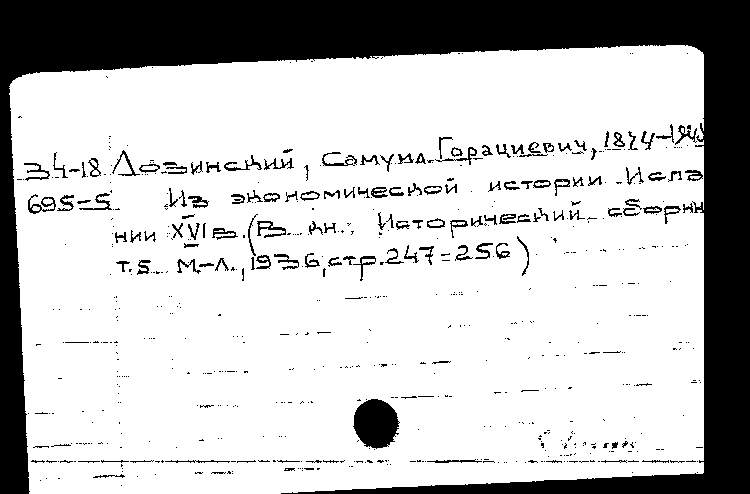 34-18 Лозинский, Самуил Горациевич, 1874-1945
695-5 Из экономической истории Испа
нии XVI в. (В кн.: Исторический сборник
т.5 М.-Л., 1936, стр. 247-256)